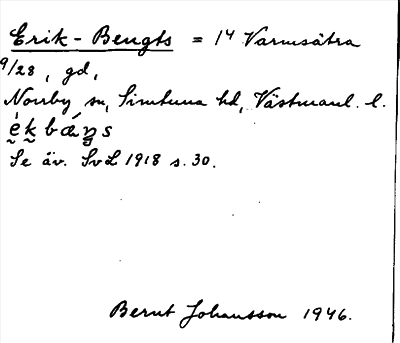 Erik-Bengts = 1⁴ Varmsätra
9/28, gd,
Norrby sn, Simtuna hd, Västmanl. l.
Se äv. SvL 1918 s. 30.
Bernt Johansson 1946.